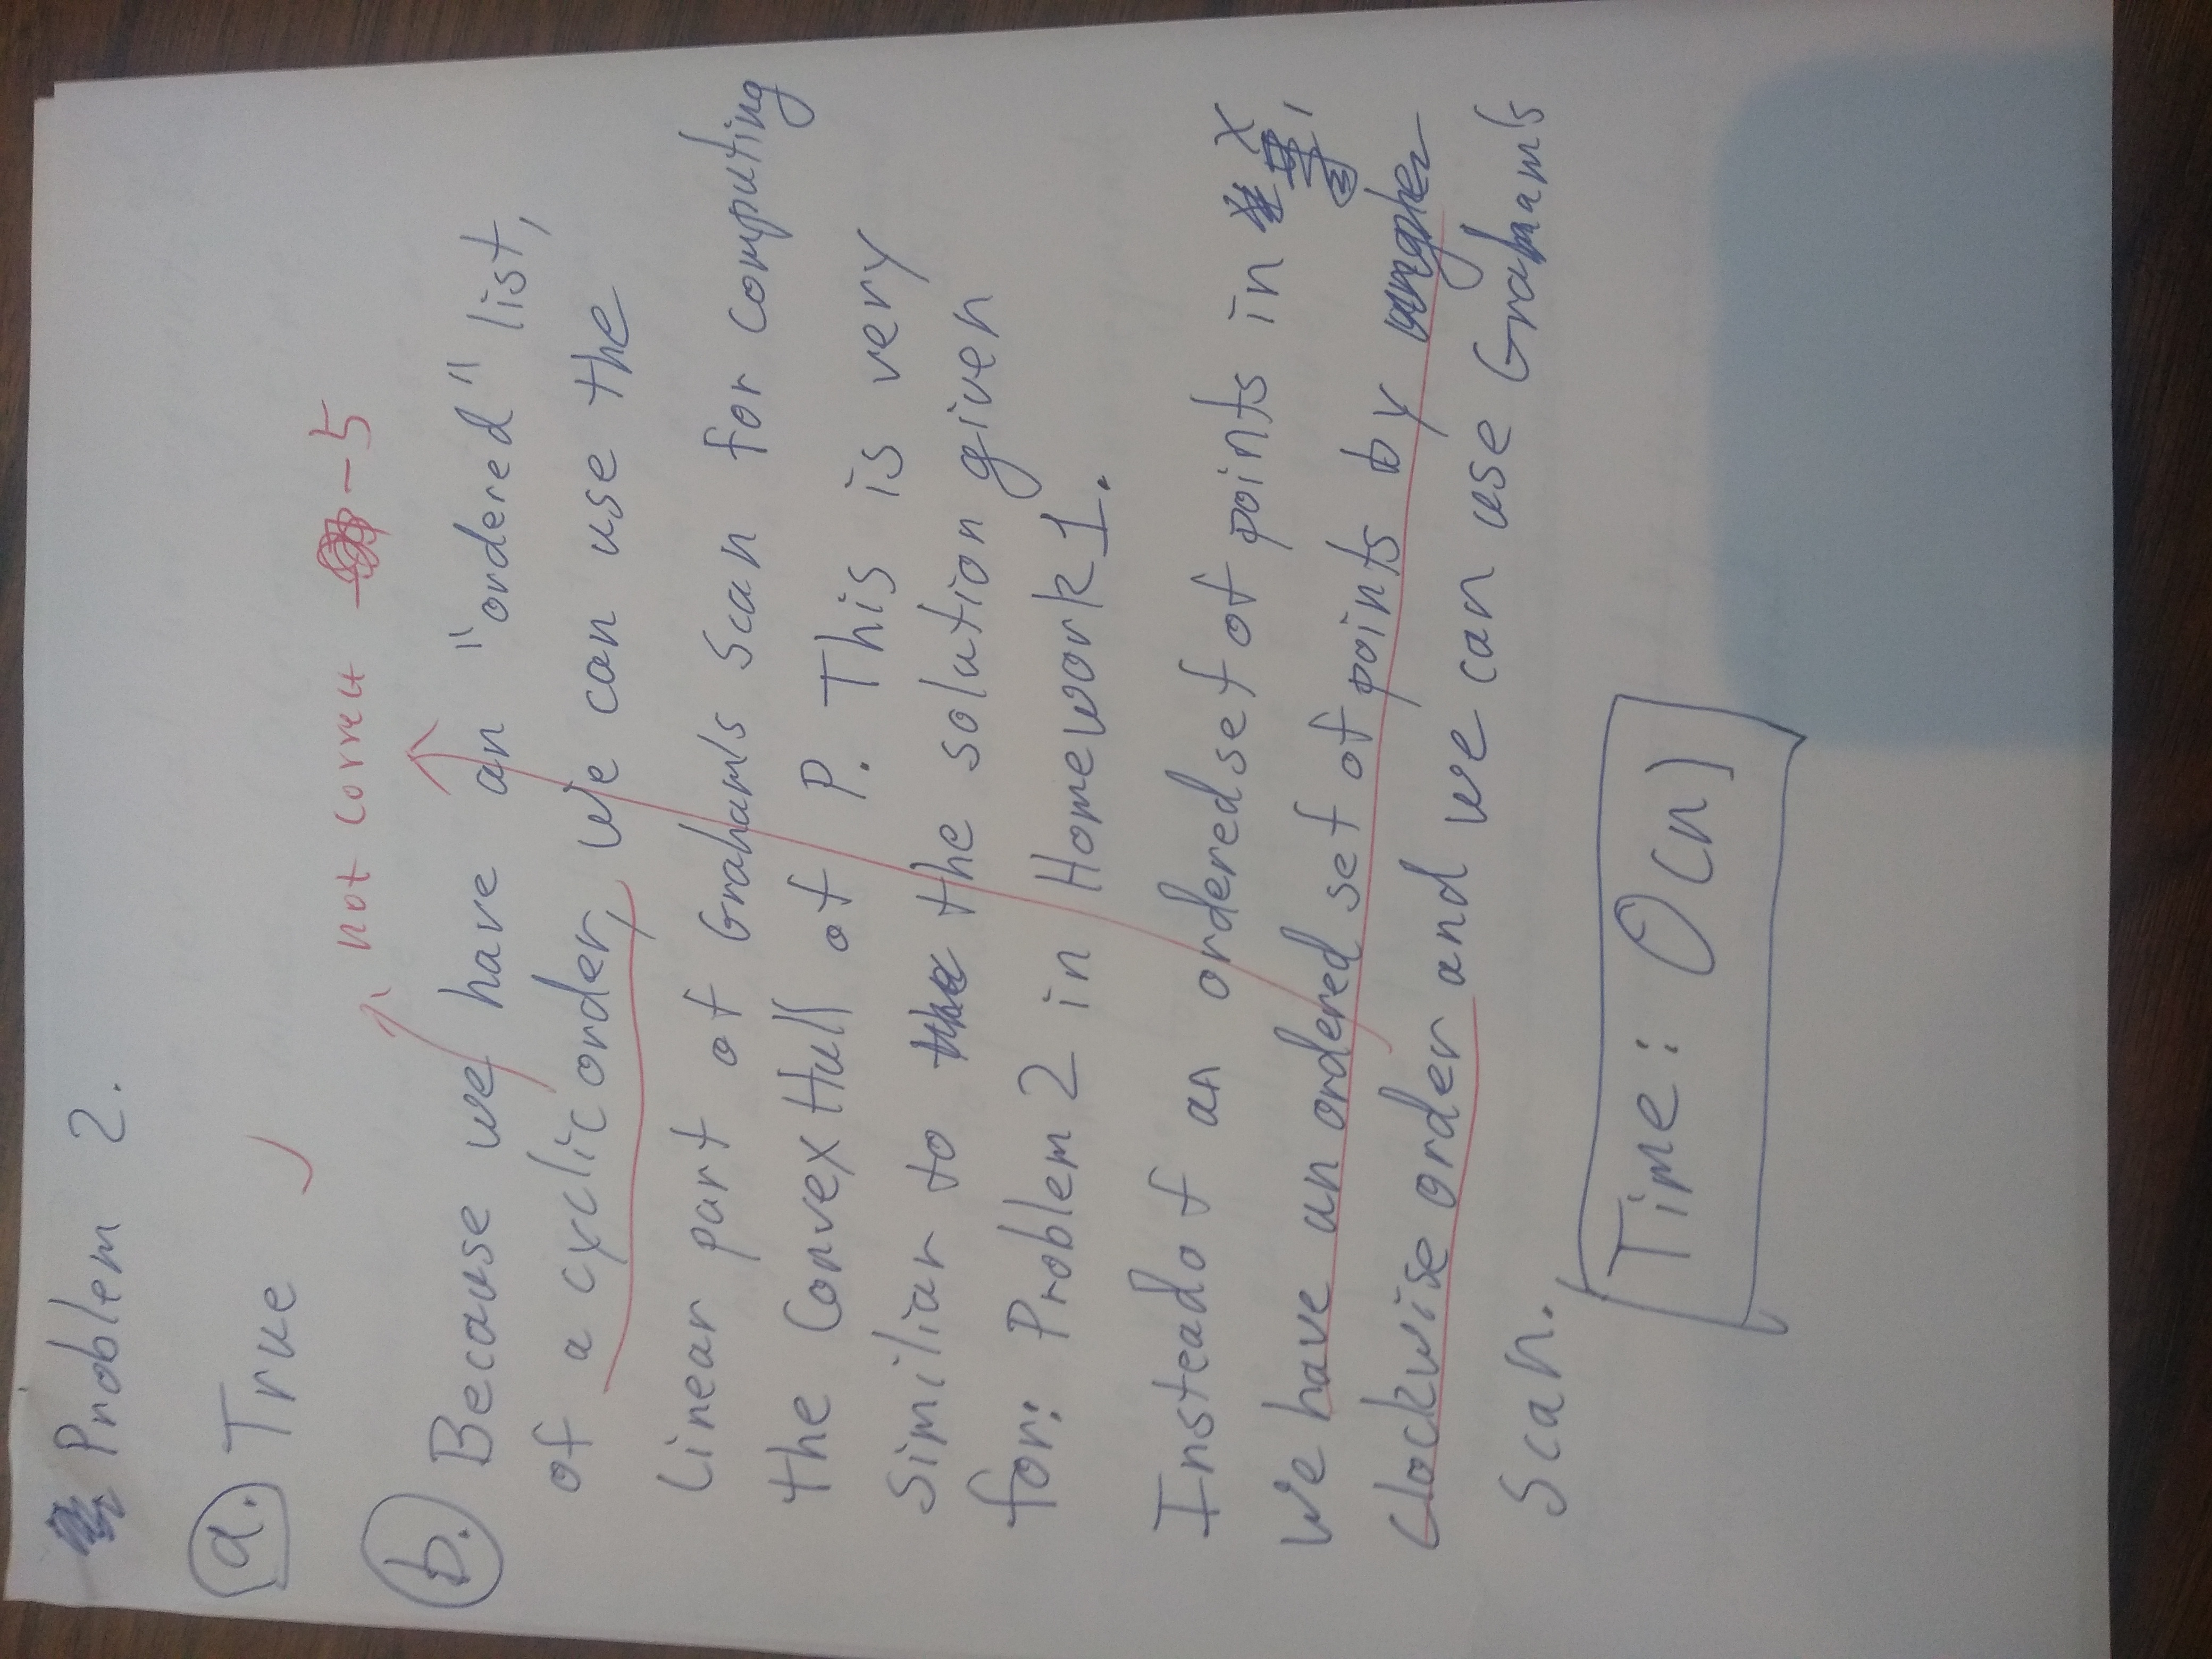 Problem 2.
a. True
not correct -5
b. Because we have an "ordered" list,
of a cyclic order, we can use the
linear part of Graham's Scan for computing
the Convex Hull of P. This is very
similiar to the solution given
for: Problem 2 in Homework 1.
Instead of an ordered set of points in x,
we have an ordered set of points by
clockwise order and we can use Graham's
Scan.
Time: O(n)